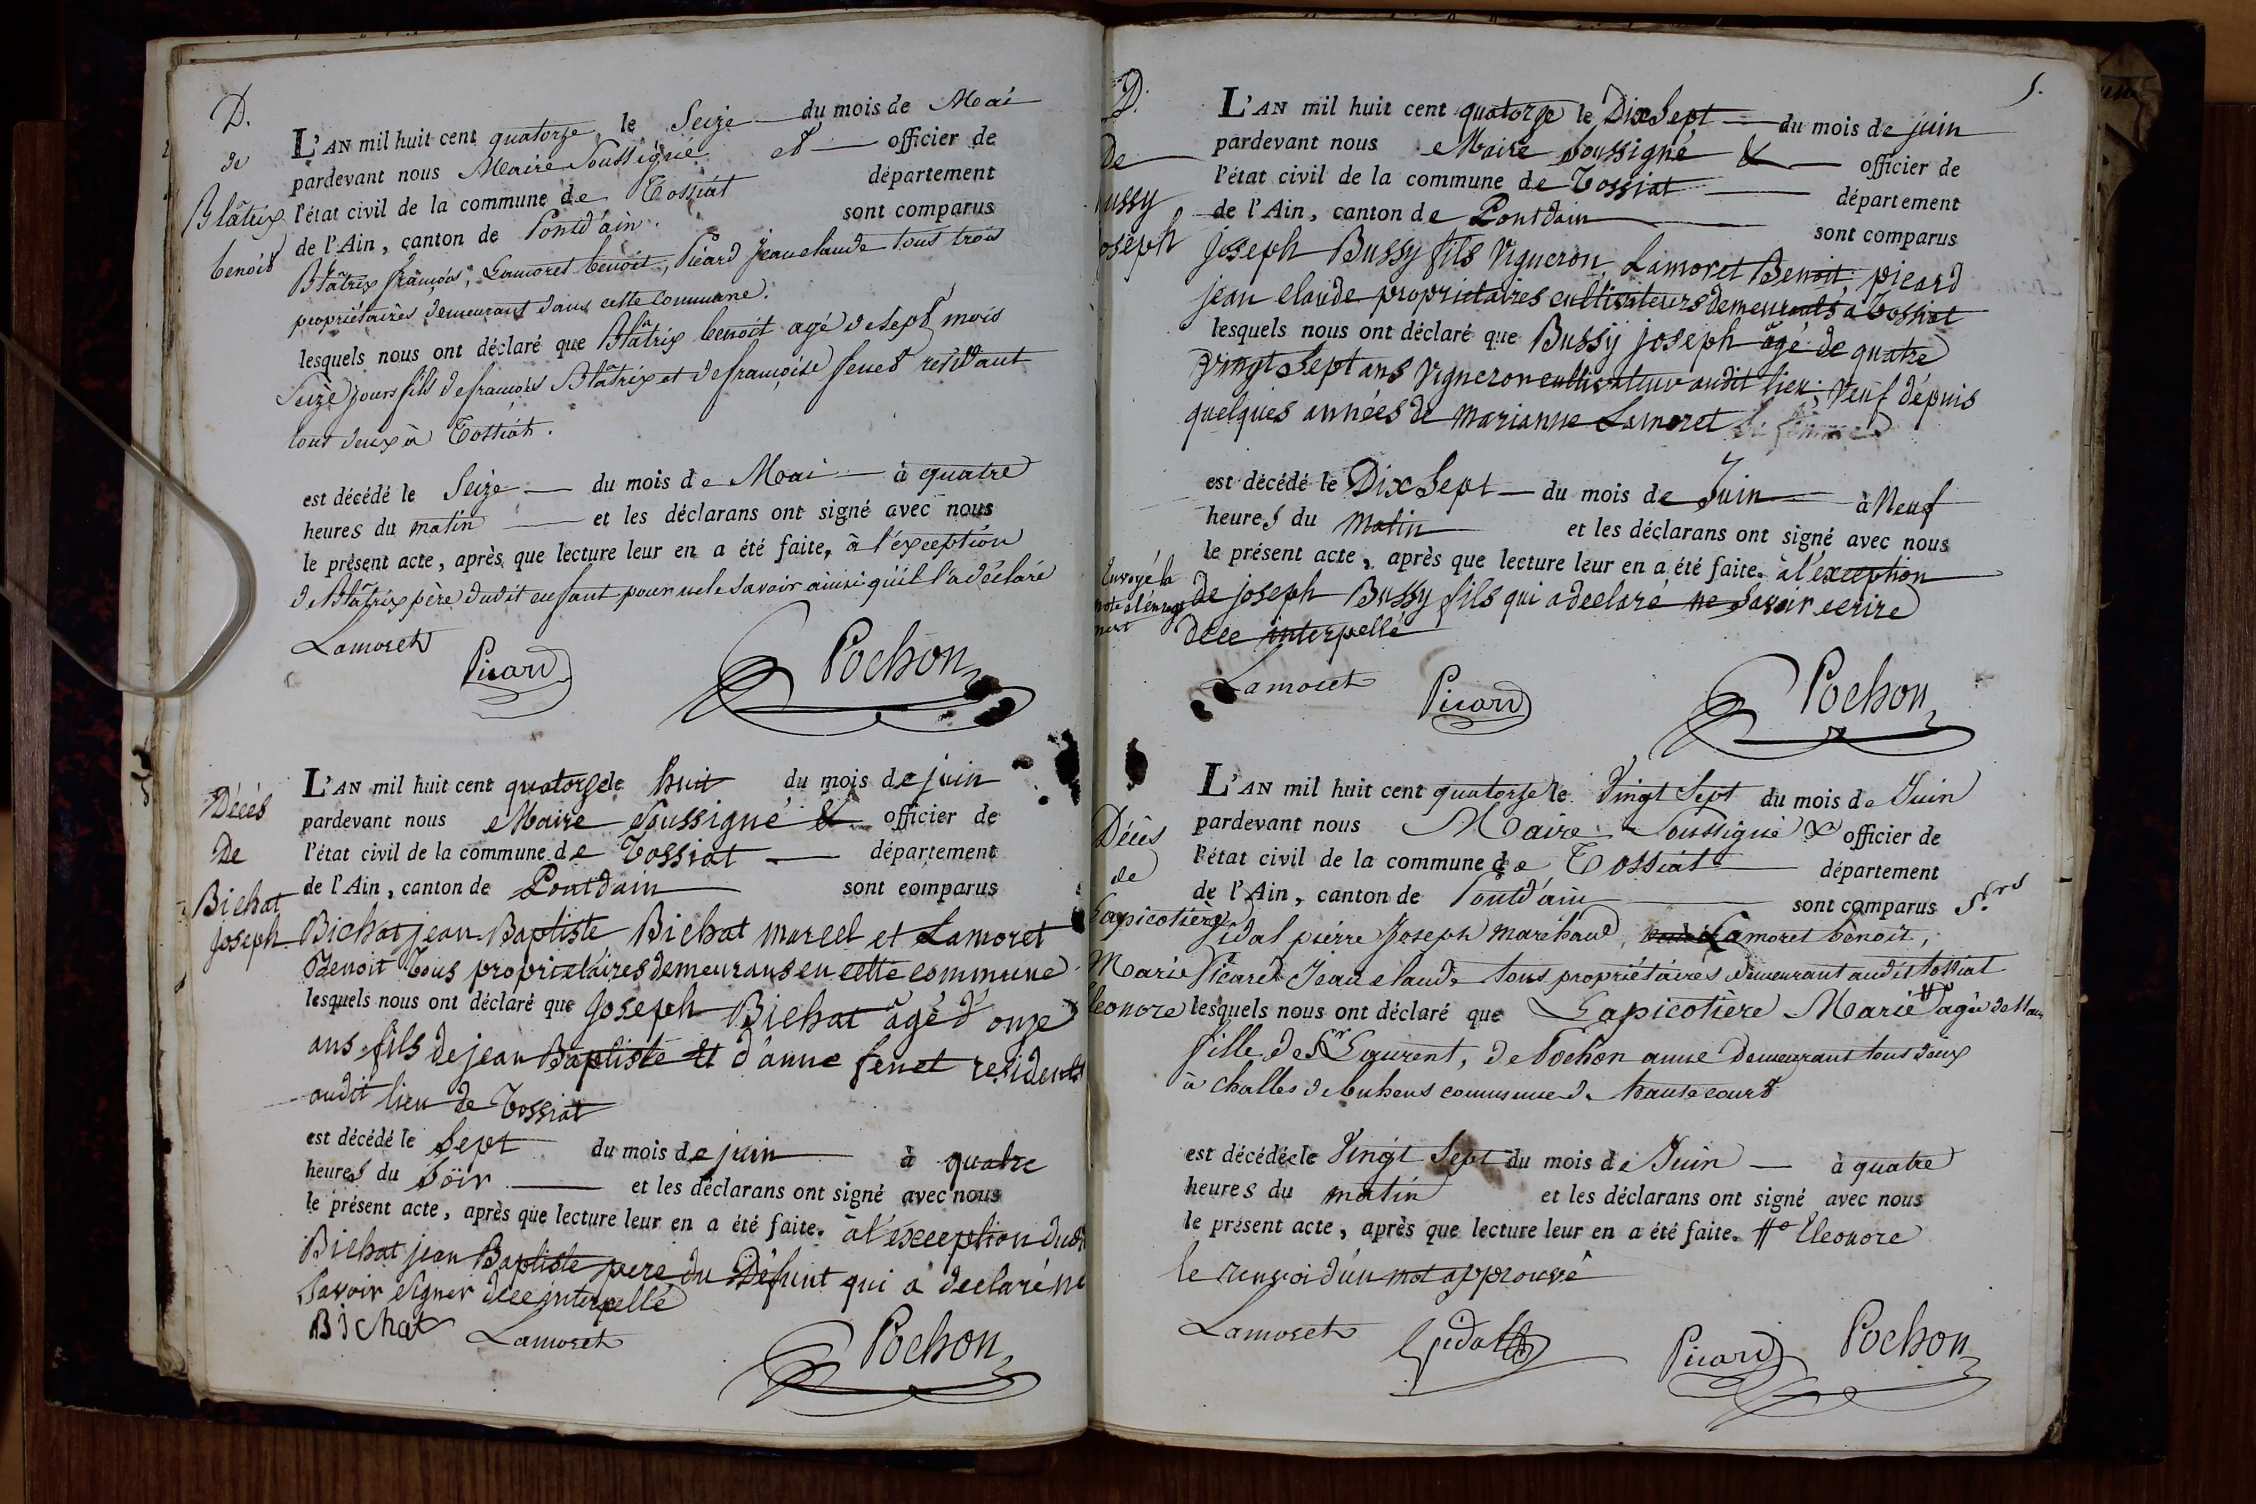 D.
de
Blâtrix
benoit
L'AN mil huit cent quatorze, le Seize du mois de Mai
pardevant nous Maire Soussigné et officier de
l'état civil de la commune de Tossiat département
de l'Ain, canton de Pontd'ain. sont comparus
Blâtrix françois, Lamoret benoit, Picard Jean claude tous trois
propriétaires demeurant dans cette commune.
lesquels nous ont déclaré que Blâtrix benoit agé de sept mois
Seize jours fils de françois Blâtrix et de françoise fenet residant
tous deux à Tossiat.
est décédé le Seize du mois de Mai à quatre
heures du matin et les déclarans ont signé avec nous
le présent acte, après que lecture leur en a été faite, à l'exception
de Blâtrix père dudit enfant pour ne le savoir ainsi qu'il l'a déclaré
Lamoret
Picard
Pochon
Décès
De
Bichat
Joseph
L'AN mil huit cent quatorze le huit du mois de juin
pardevant nous Maire Soussigné & officier de
l'état civil de la commune de Tossiat département
de l'Ain, canton de Pontdain sont comparus
Bichat jean Baptiste Bichat marcel et Lamoret
Benoit Tous proprietaires demeurans en cette commune
lesquels nous ont déclaré que Joseph Bichat âgé d'onze
ans fils de jean Baptiste et d'anne fenet residents
audit lieu de Tossiat
est décédé le Sept du mois de juin à quatre
heures du Soir et les déclarans ont signé avec nous
le présent acte, après que lecture leur en a été faite. à l'exception dudt
Bichat jean Baptiste pere du Défunt qui a declaré ne
Savoir Signer dece interpellé
Bichat Lamoret
Pochon
5.
D.
De
ussy
oseph
L'AN mil huit cent quatorze le Dix Sept du mois de juin
pardevant nous Maire Soussigné & officier de
l'état civil de la commune de Tossiat département
de l'Ain, canton de Pontdain sont comparus
Joseph Bussy fils Vigneron, Lamoret Benoit, picard
jean claude proprietaires cultivateurs demeurants a Tossiat
lesquels nous ont déclaré que Bussy joseph âgé de quatre
vingt Sept ans Vigneron cultivateur audit lieu; Veuf dépuis
quelques années de marianne Lamoret
est décédé le Dix Sept du mois de Juin à Neuf
heures du Matin et les déclarans ont signé avec nous
le présent acte, après que lecture leur en a été faite. à l'exception
de joseph Bussy fils qui a declaré ne Savoir ecrire
dece interpellé
Envoyé la
note
Lamoret
Picard
Pochon
Décès
de
Lapicotière
Marie
leonore
L'AN mil huit cent quatorze le Vingt Sept du mois de Juin
pardevant nous Maire Soussigné & officier de
l'état civil de la commune de Tossiat département
de l'Ain, canton de Pontd'ain sont comparus Srs
Vidal pierre Joseph marchand, Lamoret benoit,
Picard Jean claude tous propriétaires demeurant audit tossiat
lesquels nous ont déclaré que Lapicotière Marie # agée de
fille de Sr Laurent, de Pochon anne demeurant tous deux
à challes de buhens commune de hautecourt
est décédée le Vingt Sept du mois de Juin à quatre
heures du matin et les déclarans ont signé avec nous
le présent acte, après que lecture leur en a été faite. # Eleonore
le renvoi d'un mot approuvé
Lamoret
Vidal
Picard
Pochon